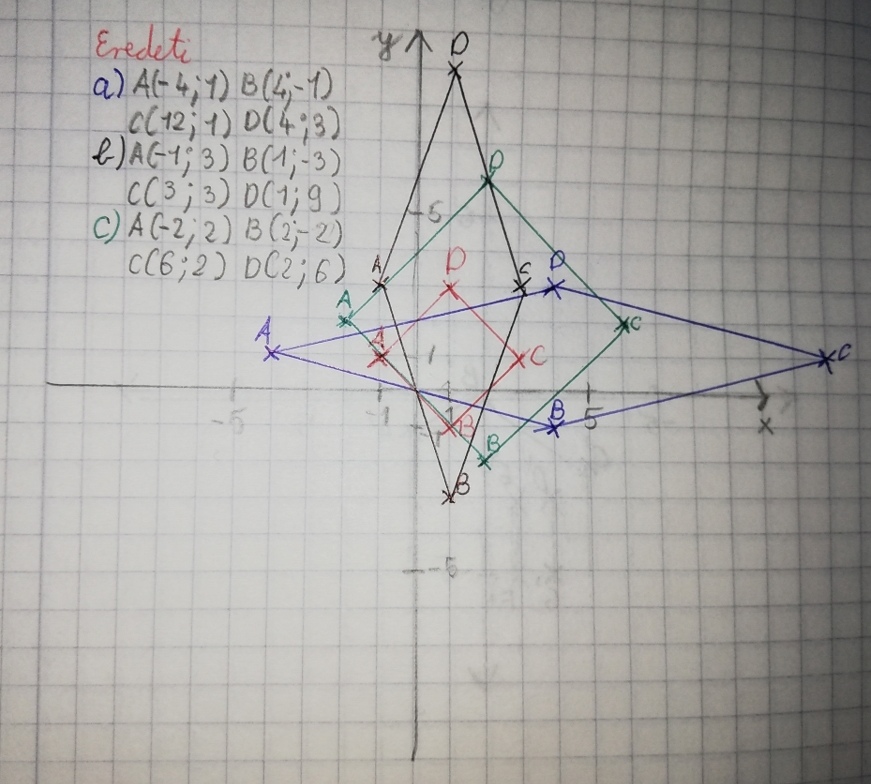 Eredeti
a) A(-4;1) B(4;-1)
C(12;1) D(4;3)
b) A(-1;3) B(1;-3)
C(3;3) D(1;9)
c) A(-2;2) B(2;-2)
C(6;2) D(2;6)
y
D
D
5
A
D
C
D
A
A
A
1
C
C
C
-5
-1
1
B
B
5
x
-1
B
B
-5